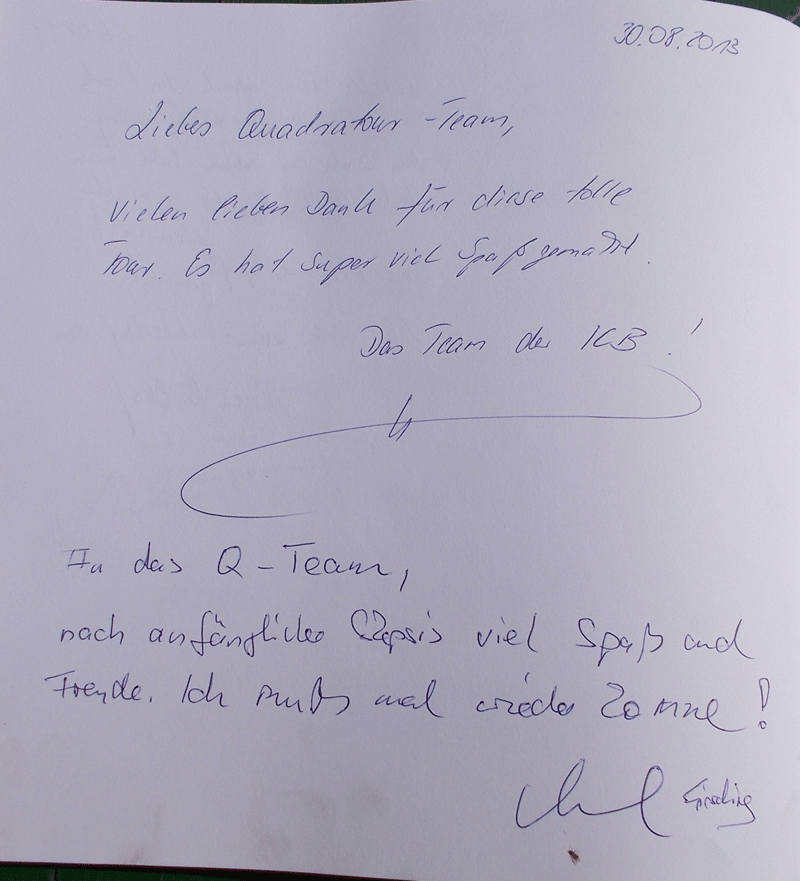 30.08.2013
Liebes Quadratour-Team,
Vielen lieben Dank für diese tolle
Tour. Es hat super viel Spaß gemacht.
Das Team der ICB!
An das Q-Team,
nach anfänglicher Skepsis viel Spaß und
Freude. Ich muß mal wieder komme!